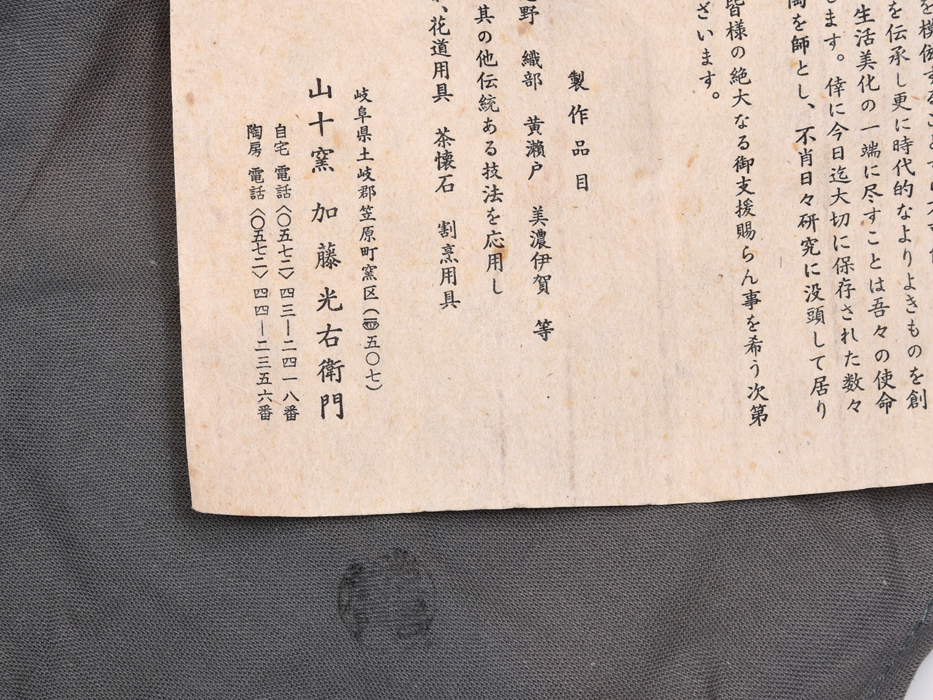 を模倣することすら
を伝承し更に時代的なよりよきものを創
生活美化の一端に尽すことは吾々の使命
します。倖に今日迄大切に保存された数々
陶を師とし、不肖日々研究に没頭して居り
皆様の絶大なる御支援賜らん事を希う次第
ざいます。
製作品目
野 織部 黄瀬戸 美濃伊賀 等
其の他伝統ある技法を応用し
、花道用具 茶懐石 割烹用具
岐阜県土岐郡笠原町窯区(〒五〇七)
山十窯 加藤光右衛門
自宅 電話〈〇五七二〉四三―二四一八番
陶房 電話〈〇五七二〉四四―二三五六番